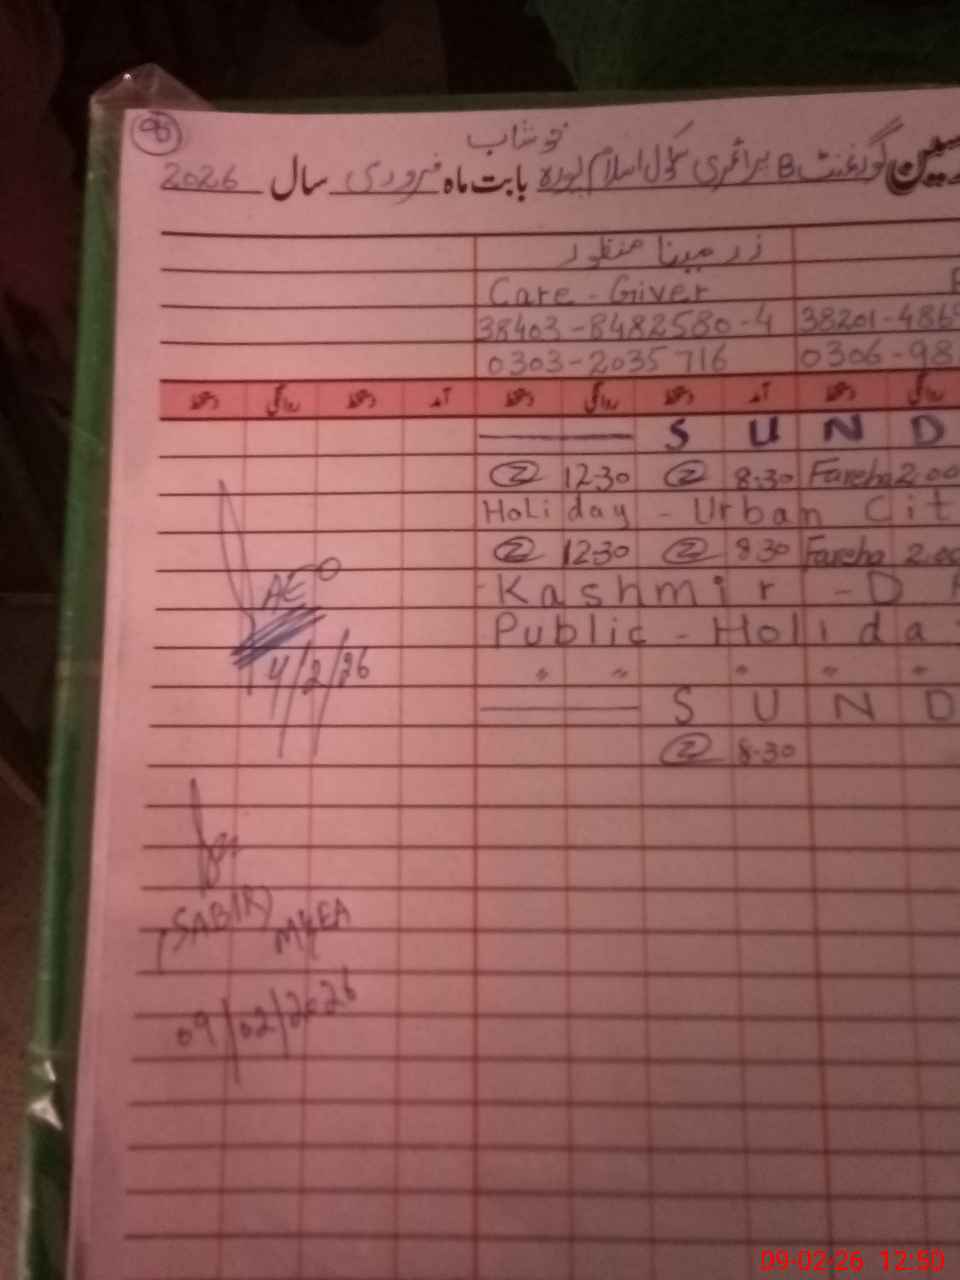 96
خوشاب
گورنمنٹ B پرائمری سکول اسلام پورہ بابت ماہ فروری سال 2026
زرمینا منظور
Care - Giver
38403-8482580-4 38201-486
0303-2035716 0306-98
دستخط روانگی دستخط آمد دستخط روانگی دستخط آمد دستخط روانگی
S U N D
Z 12-30 Z 8-30 Fareha 2.00
Holiday - Urban Cit
Z 12-30 Z 8-30 Fareha 2.00
Kashmir - D
Public - Holida
" " " " "
S U N D
Z 8-30
AEO
4/2/26
(SABIR)
MEA
09/02/2026
09-02-26 12:50